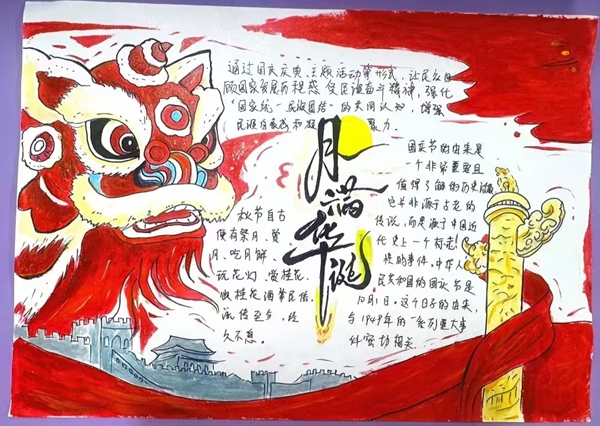 通过国庆庆典、主题活动等形式，让民众回
顾国家发展历程感受民族奋斗精神，强化
“国家统一、民族团结”的共同认知，增强
民族自豪感和凝聚力.
月满华诞
中秋节自古
便有祭月、赏
月、吃月饼、
玩花灯、赏桂花、
饮桂花酒等民俗，
流传至今，经
久不息.
国庆节的由来是
一个非常重要且
值得了解的历史
它并非源于古老的
传说，而是源于中国近
代史上一个
的事件，中华人
民共和国的国庆节是
10月1日。这个日子的由来，
与1949年的一系列重大事
件密切相关